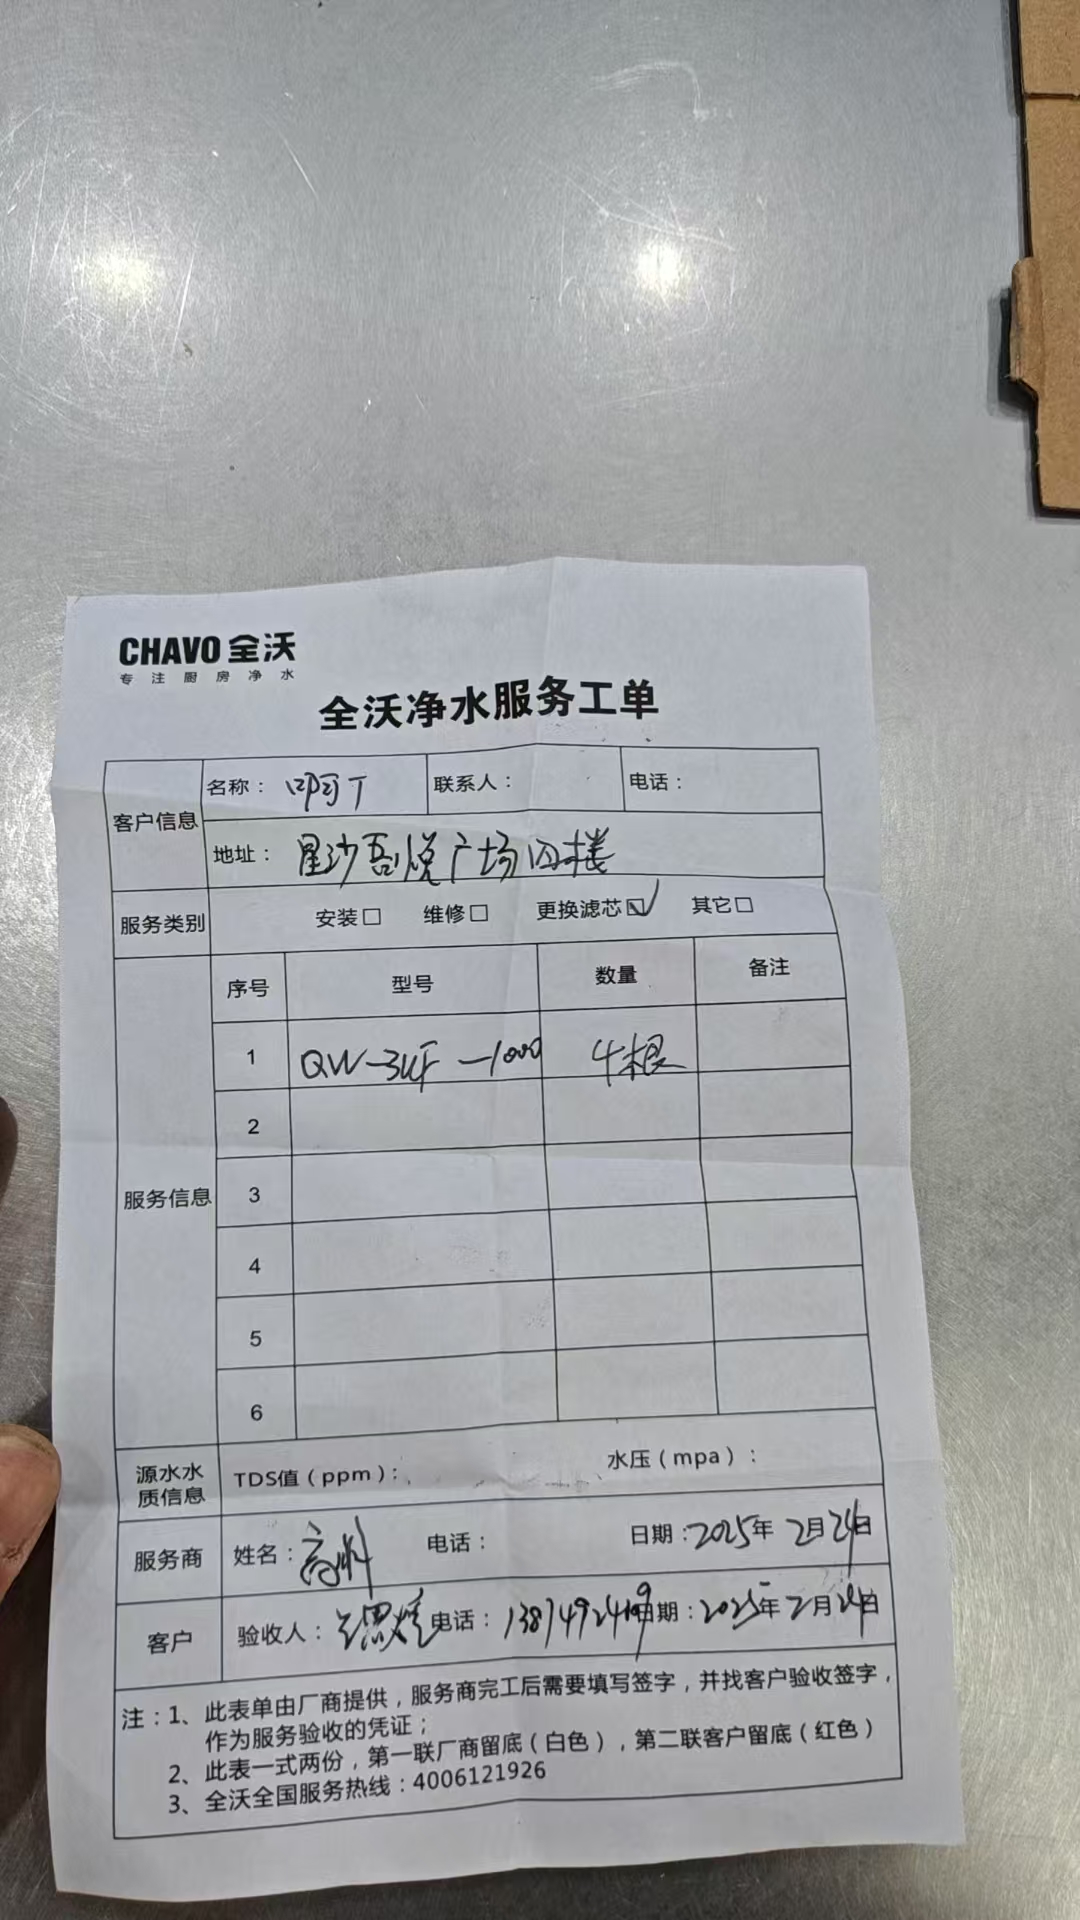 CHAVO 全沃
专注厨房净水
全沃净水服务工单
客户信息
名称：叩可丁 联系人： 电话：
地址：星沙吾悦广场四楼
服务类别 安装□ 维修□ 更换滤芯☑ 其它□
服务信息
序号 型号 数量 备注
1 QW-3UF-1000 4根
2
3
4
5
6
源水水质信息 TDS值（ppm）： 水压（mpa）：
服务商 姓名： 电话： 日期：2025年2月24日
客户 验收人： 电话： 日期：2025年2月24日
注：1、此表单由厂商提供，服务商完工后需要填写签字，并找客户验收签字，
作为服务验收的凭证；
2、此表一式两份，第一联厂商留底（白色），第二联客户留底（红色）
3、全沃全国服务热线：4006121926